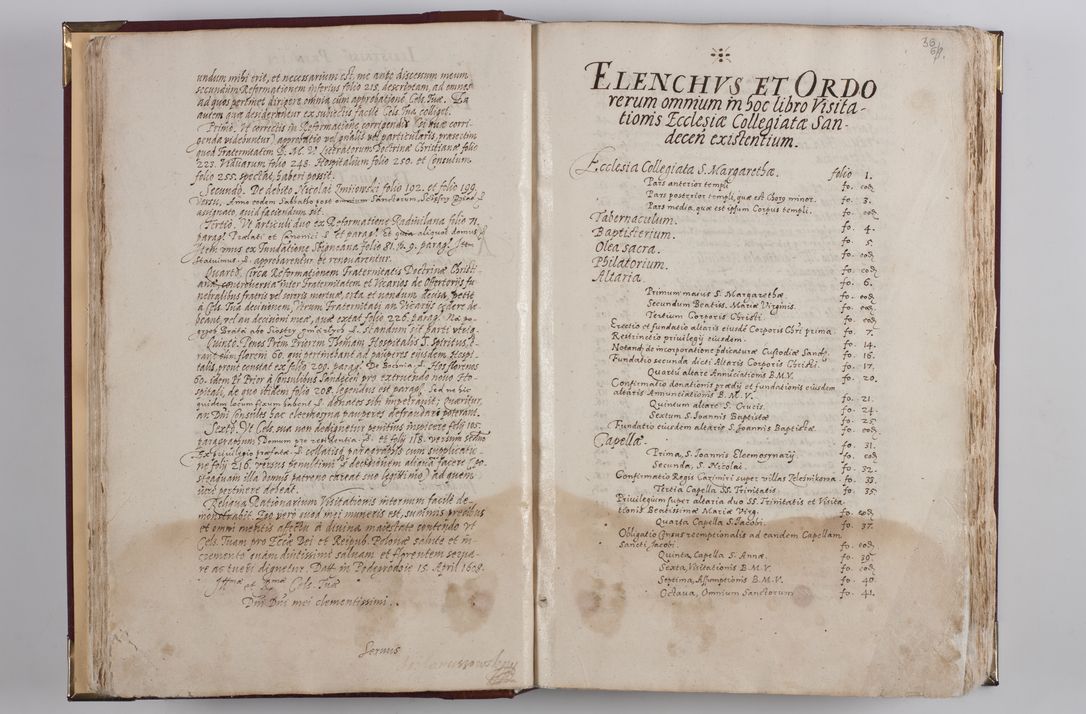 undum mihi erit, et necessarium est, me ante discessum meum
secundum Reformationem inferius folio 215. descriptam, ad omnes
ad quos pertinet dirigere omnia, cum approbatione Cels. Tuæ. Ea
autem quæ desiderantur ex subiectis facile Cels. Tua colliget.
Primo. Ut correctis in Reformatione corrigendis
genda videbuntur) approbatio vel gñalis vel particularis, præsertim
quoad Fraternitatem B. M. V. Literatorum Doctrinæ Christianæ folio
223. Vicariorum folio 248. Hospitalium folio 250. et Consulum
folio 255. spectat, haberi possit.
Secundo. De debito Nicolai Zmijowski folio 192. et folio 199.
versu, Anno eodem Sabbatho post omnium Sanctorum,
assignato, quid faciendum sit.
Tertio. Ut articuli duo ex Reformatione Radinilana folio 71.
parag! Prælati et Canonici &. et parag! Et quia aliquot domus
item unus ex Fundatione Sbigneana folio 81. in 9. parag! Item
statuimus &. approbarentur et renovarentur.
Quarto, Circa Reformationem Fraternitatis Doctrinæ Christi-
anæ controversia inter Fraternitatem et Vicarios de Offertoriis fu-
nebralibus fratris vel sororis mortuæ, orta et nondum decisa, petit
a Cels. Tua decisionem, Utrum Fraternitati an Vicariis cedere de-
beant, vel an decisioni meæ, quæ extat folio 226. parag. Na po-
grzeb Brata abo Siostry, gmarłych &. standum sit parti utriq.
Quinto. Penes Prem Priorem Thomam Hospitalis S. Spiritus, e-
rant olim floreni 60. qui pertinebant ad pauperes eiusdem Hospi-
talis, prout constat ex folio 209. parag. De Bocinia &. Hos florenos
60. idem Pr Prior a Consulibus Sandecen pro extruendo novo Ho-
spitali, de quo itidem folio 208. legendus est parag. Sed ne hic
quidem locum fixum habens &. donates sibi impetravit; Quæritur,
an Dni Consules hac eleemosyna pauperes defraudare poterant.
Sexto. Ut Cels. sua non dedignetur penitius inspicere folij 105.
paragraphum Domum pro residentia &. et folij 118. versum sedno
Ex privilegio præfato &. collatisq paragraphis cum supplicatio-
ne folij 216. versus penultimi &. decisionem aliquã facere (po-
steaquam illa domus patrono careat suo legitimo) ad quem
iure pertinere debeat.
Reliqua Rationarium Visitationis internum facile de-
monstrabit. Ego vero quod mei muneris est, summis precibus
et omni mentis affectu a divina maiestate contendo ut
Cels. Tuam pro Ecciæ Dei et Reipub. Polonæ salute et in-
cremento quàm diutissime salvam et florentem serva-
re ac tueri dignetur. Datt. in Podegrodzie 15. April 1608.
Illmæ et Rmæ Cels. Tuæ
Dni Dni mei clementissimi.
Servus
36
ELENCHVS ET ORDO
rerum omnium in hoc libro Visita-
tionis Ecclesiæ Collegiatæ San-
decen existentium.
Ecclesia Collegiata S. Margarethæ. folio 1.
Pars anterior templi. fo. eod.
Pars posterior templi, quæ est Chorq minor. fo. 3.
Pars media, quæ est ipsum Corpus templi. fo. eod.
Tabernaculum. fo. 4.
Baptisterium. fo. 5.
Olea sacra. fo. eod.
Philatorium. fo. eod.
Altaria. fo. 6.
Primum maius S. Margarethæ. fo. eod.
Secundum Beatiss. Mariæ Virginis. fo. eod.
Tertium Corporis Christi. fo. eod.
Erectio et fundatio altaris eiusdẽ Corporis Chri prima. fo. 7.
Restrinctio privilegij eiusdem. fo. 14.
Notand. de incorporatione pdicaturæ Custodiæ Sandc. fo. 16.
Fundatio secunda dicti Altaris Corporis Christi. fo. 17.
Quartũ altare Annũciationis B.M.V. fo. 20.
Confirmatio donationis prædij et fundationis eiusdem
altaris Annunciationis B. M. V. fo. 21.
Quintum altare S. Crucis. fo. 24.
Sextum S. Joannis Baptistæ fo. 25.
Fundatio eiusdem altaris S. Joannis Baptistæ. fo. eod.
Capellæ. fo. 31.
Prima, S. Joannis Eleemosynarij. fo. eod.
Secunda, S. Nicolai. fo. 32.
Confirmatio Regis Cazimiri super villas Zelesnikowa fo. 33.
Tertia Capella SS. Trinitatis. fo. 35.
Privilegium super altaria duo SS. Trinitatis et Visita-
tionis Beatissimæ Mariæ Virg. fo. eod.
Quarta Capella S. Jacobi. fo. 37.
Obligatio Census reemptionalis ad eandem Capellam
Sancti Jacobi. fo. eod.
Quinta, Capella S. Annæ. fo. 39.
Sexta, Visitationis B.M.V. fo. eod.
Septima, Assumptionis B.M.V. fo. 40.
Octava, Omnium Sanctorum fo. 41.